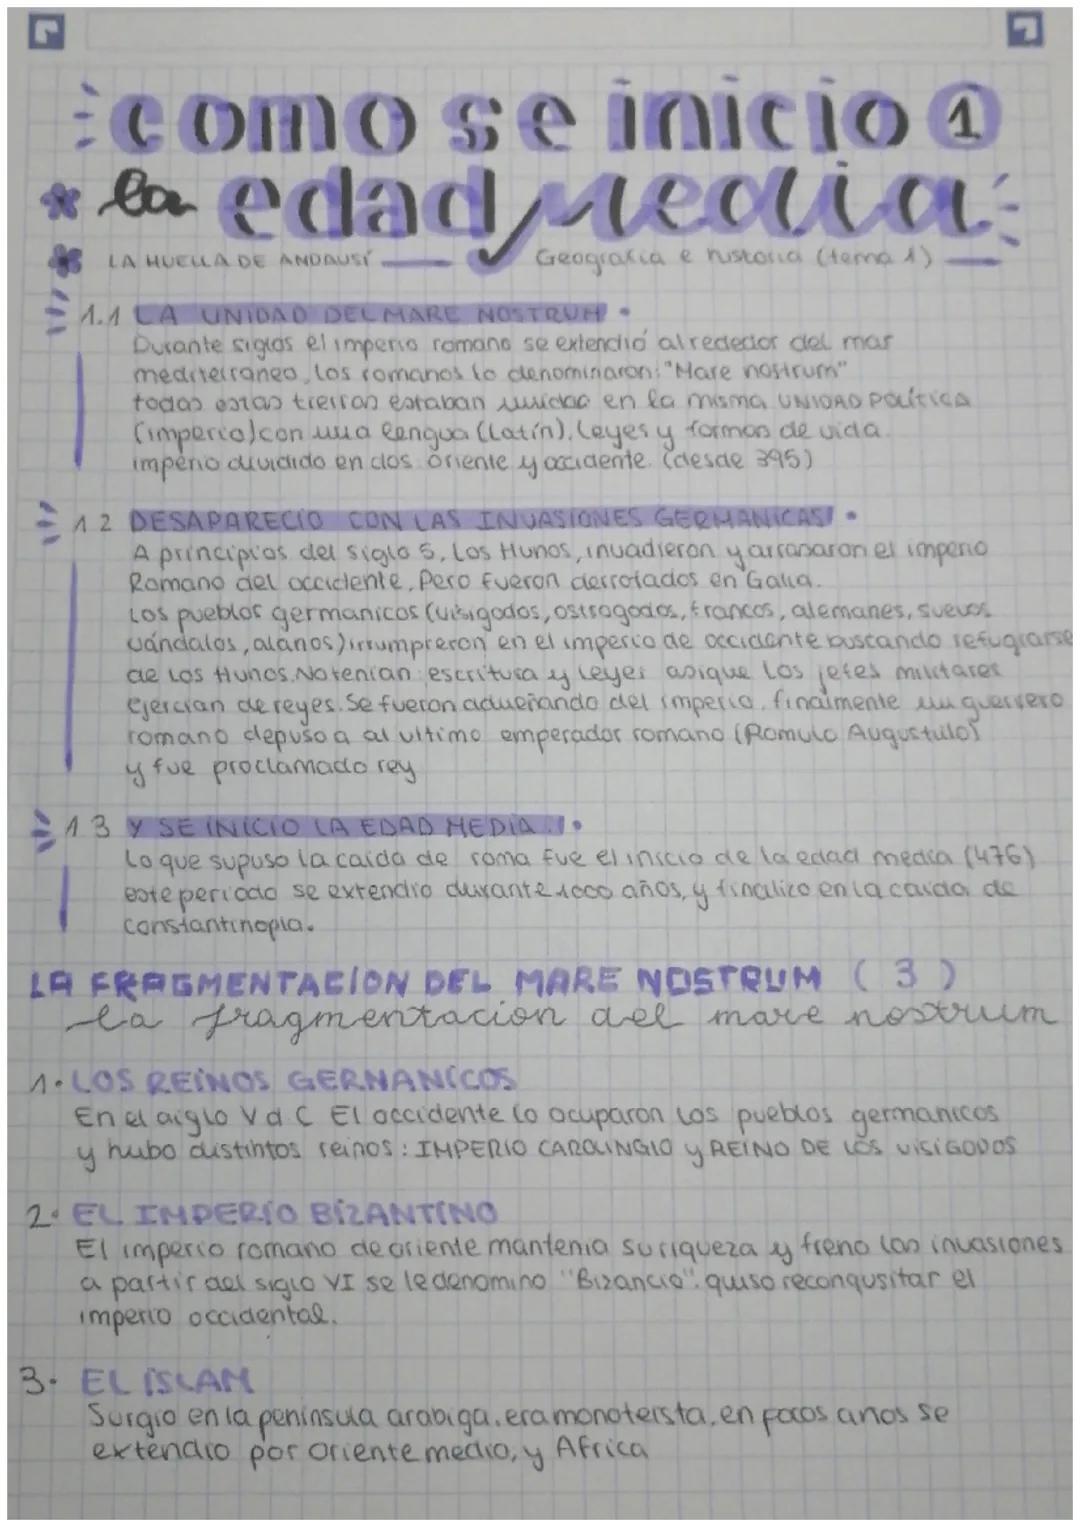 como se inicio 1
la edad Media
LA HUELLA DE ANDAUSÍ Geografia e historia (tema 1)
1.1 LA UNIDAD DEL MARE NOSTRUM.
Durante siglos el imperio romano se extendió alrededor del mar
mediterraneo, los romanos lo denominaron: "Mare nostrum"
todas estas tierras estaban unidas en la misma UNIDAD POLÍTICA
(imperio) con una lengua (Latín), leyes y formas de vida.
imperio dividido en dos. oriente y occidente. (desde 395)
1 2 DESAPARECIO CON LAS INVASIONES GERMANICAS.
A principios del siglo 5, los Hunos, invadieron y arrasaron el imperio
Romano del occidente. Pero fueron derrotados en Galia.
Los pueblos germanicos (visigodos, ostrogodos, francos, alemanes, suevos
vándalos, alanos) irrumpieron en el imperio de occidente buscando refugiarse
de los Hunos. No tenian: escritura y leyes asique los jefes militares
ejercian de reyes. Se fueron adueñando del imperio, finalmente un guerrero
romano depuso a al ultimo emperador romano (Romulo Augustulo)
y fue proclamado rey
1 3 Y SE INICIO LA EDAD MEDIA...
Lo que supuso la caida de roma fue el inicio de la edad media (476)
este periodo se extendio durante 1000 años, y finalizo en la caida de
Constantinopla.
LA FRAGMENTACION DEL MARE NOSTRUM (3)
la fragmentacion del mare nostrum
1. LOS REINOS GERMANICOS
En el aiglo V d C El occidente lo ocuparon los pueblos germanicos
y hubo distintos reinos: IMPERIO CAROLINGIO y REINO DE LOS VISIGODOS
2. EL IMPERIO BIZANTINO
El imperio romano de oriente mantenia su riqueza y freno las invasiones
a partir del siglo VI se le denomino "Bizancio". quiso reconqusitar el
imperio occidental.
3. EL ISLAM
Surgio en la peninsula arabiga. era monoteista. en pocos anos se
extendio por oriente medio, y Africa